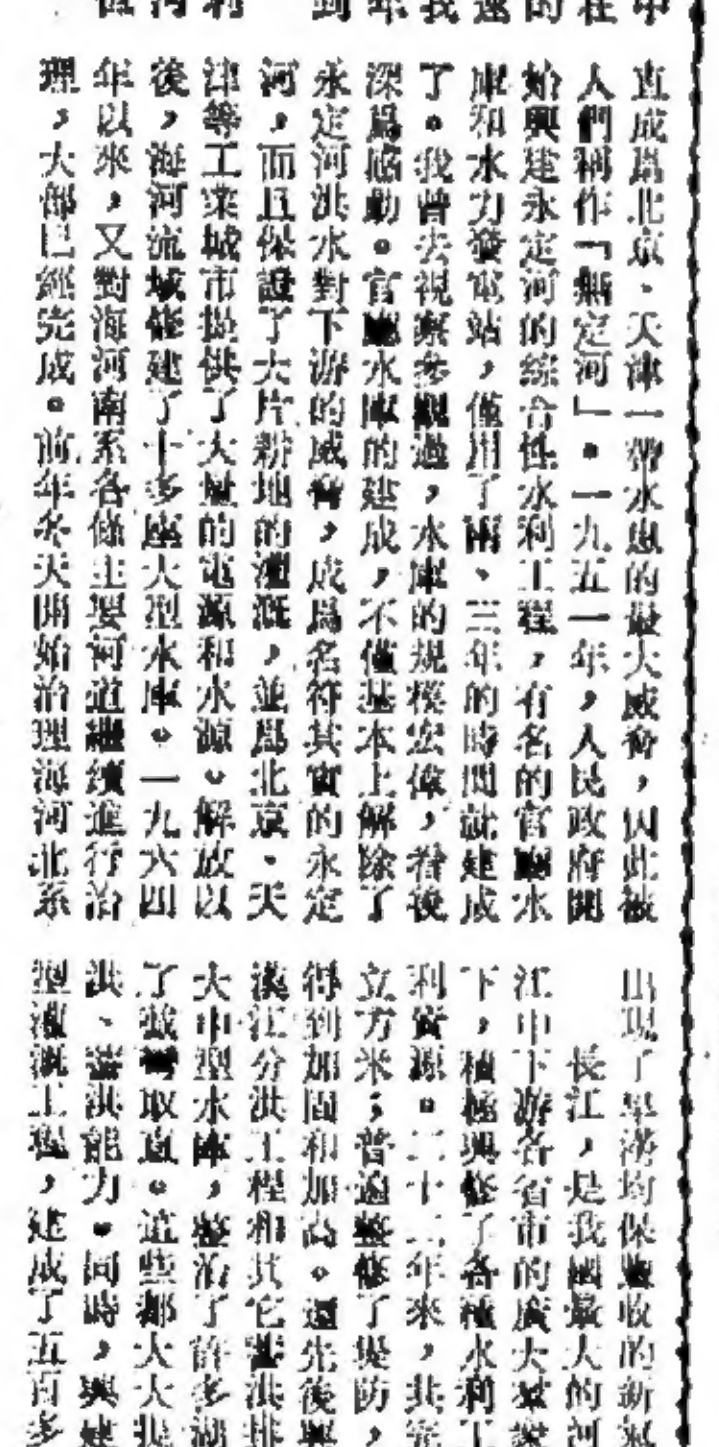 直成爲北京、天津一帶水患的最大威脅，因此被
人們稱作「無定河」。一九五一年，人民政府開
始興建永定河的綜合性水利工程，有名的官廳水
庫和水力發電站，僅用了兩、三年的時間就建成
了。我曾去視察參觀過，水庫的規模宏偉，看後
深爲感動。官廳水庫的建成，不僅基本上解除了
永定河洪水對下游的威脅，成爲名符其實的永定
河，而且保證了大片耕地的灌溉，並爲北京、天
津等工業城市提供了大量的電源和水源。解放以
後，海河流域修建了十多座大型水庫。一九六四
年以來，又對海河南系各條主要河道繼續進行治
理，大部已經完成。前年冬天開始治理海河北系
出現了旱澇均保豐收的新
長江，是我國最大的河
江中下游各省市的廣大羣
下，積極興修了各種水利工
利資源。二十二年來，共完
立方米；普遍整修了堤防，
得到加固和加高。還先後興
漢江分洪工程和其它蓄洪排
大中型水庫，整治了許多湖
了裁彎取直。這些都大大提
洪、蓄洪能力。同時，興建
型灌溉工程，建成了五百多